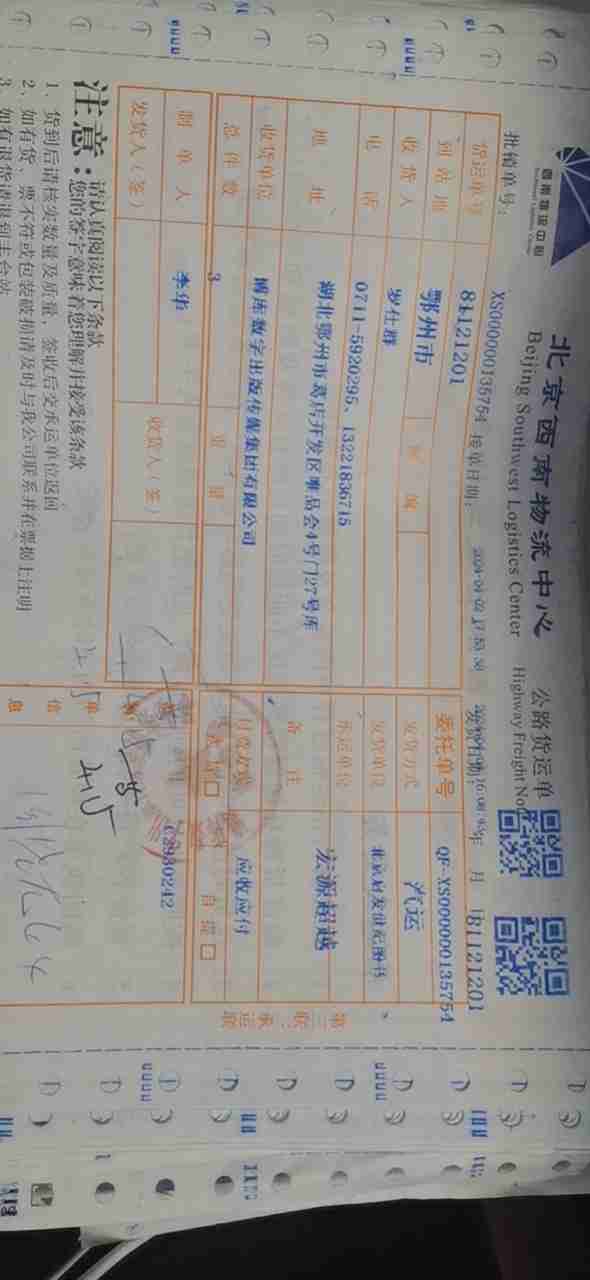 西南物流中心
Southwest Logistics Center
北京西南物流中心 公路货运单
Beijing Southwest Logistics Center Highway Freight No
批销单号： XS000000135754 接单日期： 2024-04-02 17:53:30 发货日期： 年 月 81121201
货运单号 81121201 委托单号 QF-XS000000135754
到站地 鄂州市 发货方式 汽运
收货人 罗仕群 区域 发货单位 北京好发世纪图书
电话 0711-5920295、13221836715 承运单位 宏源超越
地址 湖北鄂州市葛店开发区唯品会4号门27号库 备注
收货单位 博库数字出版传媒集团有限公司 付款方式 应收应付
总件数 3 重量 送货 自提
制单人 李华 C8980242
发货人（签） 收货人（签） 签单信息
注意：请认真阅读以下条款
您的签字意味着您理解并接受该条款
1、货到后请核实数量及质量，签收后交承运单位返回
2、如有货、票不符或包装破损请及时与我公司联系并在票据上注明
3、如有退货请退到丰台站
第三联：承运联